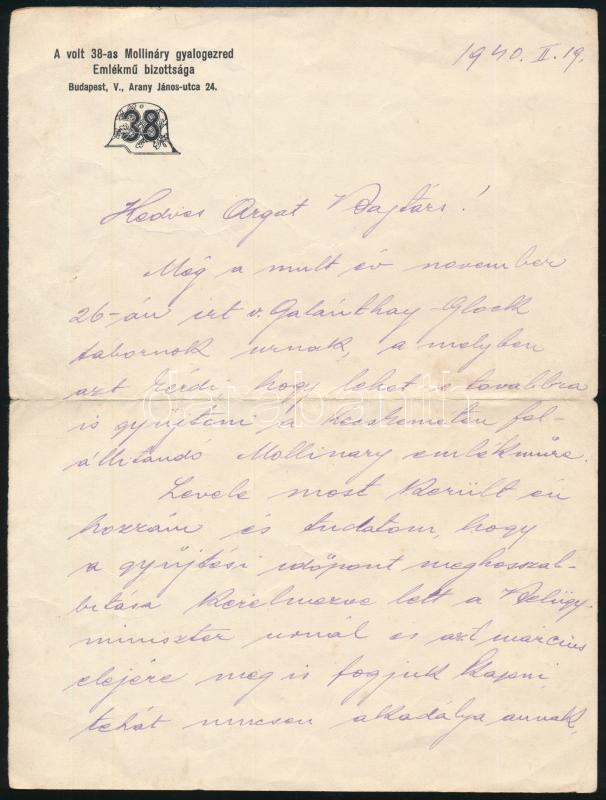 A volt 38-as Mollináry gyalogezred
Emlékmű bizottsága
Budapest, V., Arany János-utca 24.
38
1940. II. 19.
Kedves Bajtárs!
Még a mult év november
26-án irt v. Galánthay-Glock
tábornok urnak, a melyben
azt kérdi, hogy lehet-e tovabbra
is gyűjteni a Kecskeméten fel-
állitandó Mollinary emlékműre.
Levele most került én
hozzám és tudatom, hogy
a gyűjtési időpont meghosszab-
bitása kérelmezve lett a Belügy-
miniszter urnál es azt március
elejére meg is fogjuk kapni,
tehát nincsen akadálya annak,
darabanth.com